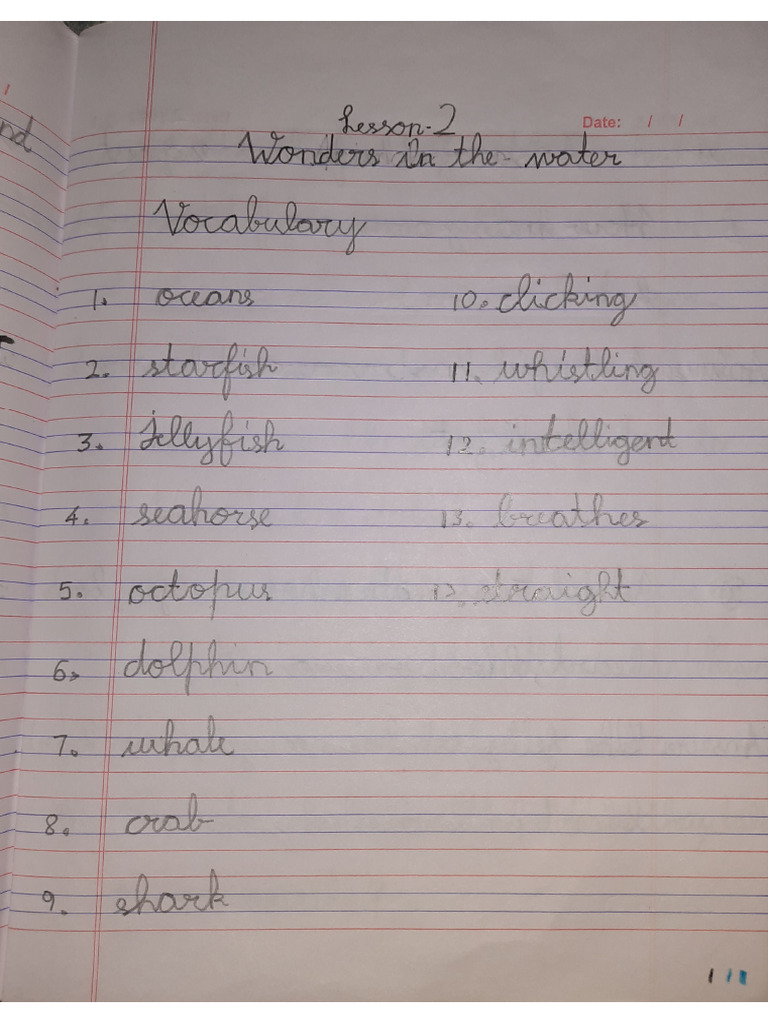 Lesson-2
Date: / /
Wonders in the water
Vocabulary
1. oceans
2. starfish
3. jellyfish
4. seahorse
5. octopus
6. dolphin
7. whale
8. crab
9. shark
10. clicking
11. whistling
12. intelligent
13. breathes
straight